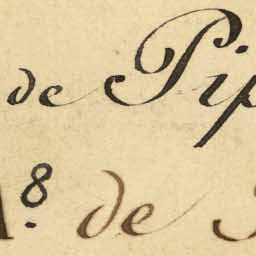 de Pip
8. de